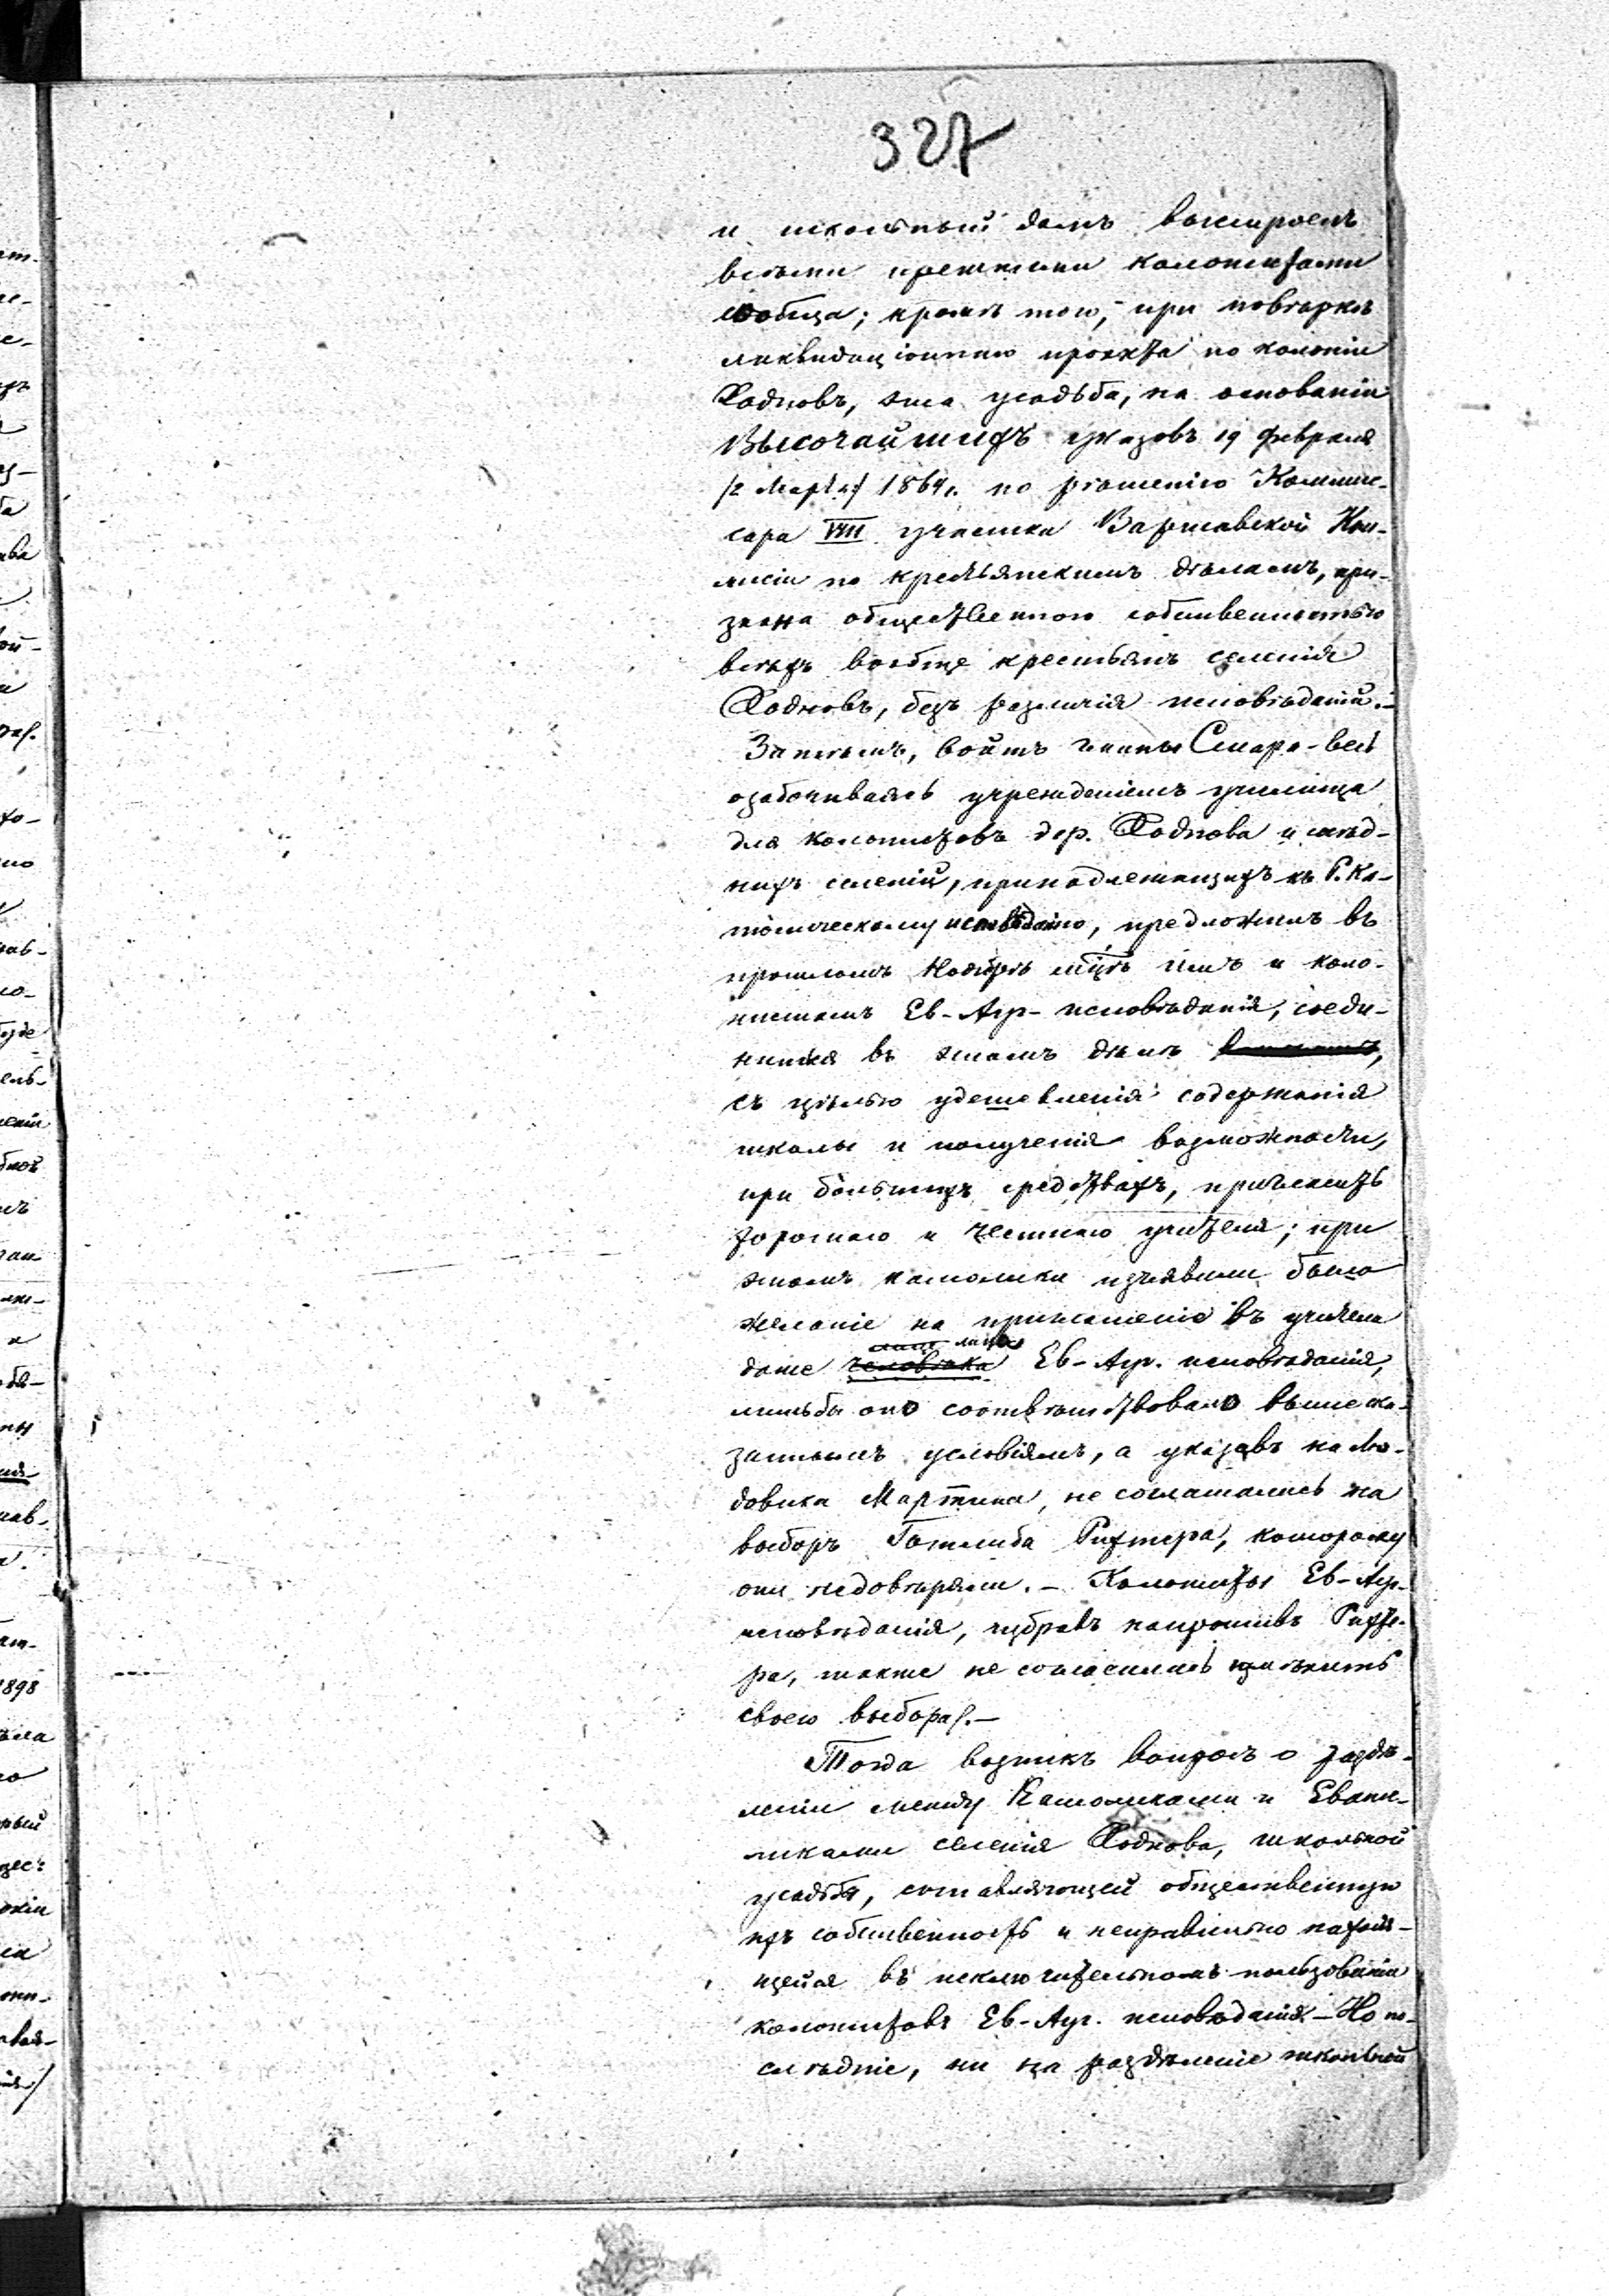 327
и школьный домъ выстроенъ
всѣми прежними колонистами
сообща; кромѣ того, при повѣркѣ
ликвидаціоннаго проэкта по колоніи
Ходновъ, эта усадьба, на основаніи
Высочайшихъ указовъ 19 февраля
/2 Марта/ 1864 г. по рѣшенію Коммис-
сара VIII участка Варшавской Ком-
мисіи по крестьянскимъ дѣламъ, при-
знана общественною собственностью
всѣхъ вообще крестьянъ селенія
Ходновъ, безъ различія исповѣданій.-
Затѣмъ, войтъ гмины Стара-весь
озабочиваясь учрежденіемъ училища
для колонистовъ дер. Ходнова и сосѣд-
нихъ селеній, принадлежащихъ къ Р. Ка-
толическому исповѣданію, предложилъ въ
прошломъ Ноябрѣ мцѣ имъ и коло-
нистамъ Ев-Ауг- исповѣданія, соеди-
ниться въ этомъ дѣлѣ
съ цѣлью удешевленія содержанія
школы и полученія возможности,
при большихъ средствахъ, пріискать
хорошаго и честнаго учителя; при
этомъ католики изъявили было
желаніе на приглашеніе въ учителя
лица
даже человѣка Ев-Ауг. исповѣданія,
лишь бы оно соотвѣтствовало вышеска-
заннымъ условіямъ, а указавъ на Лю-
довика Мартина, не соглашались на
выборъ Готлиба Рихтера, которому
они недовѣряли.- Колонисты Ев-Ауг-
исповѣданія, избравъ напротивъ Рихте-
ра, также не согласились измѣнить
своего выбора.-
Тогда возникъ вопросъ о раздѣ-
леніи между Католиками и Еванге-
ликами селенія Ходнова, школьной
усадьбы, составляющей общественную
ихъ собственность и неправильно находя-
щейся въ исключительномъ пользованіи
колонистовъ Ев-Ауг. исповѣданія - Но по-
слѣдніе, ни на раздѣленіе школьной